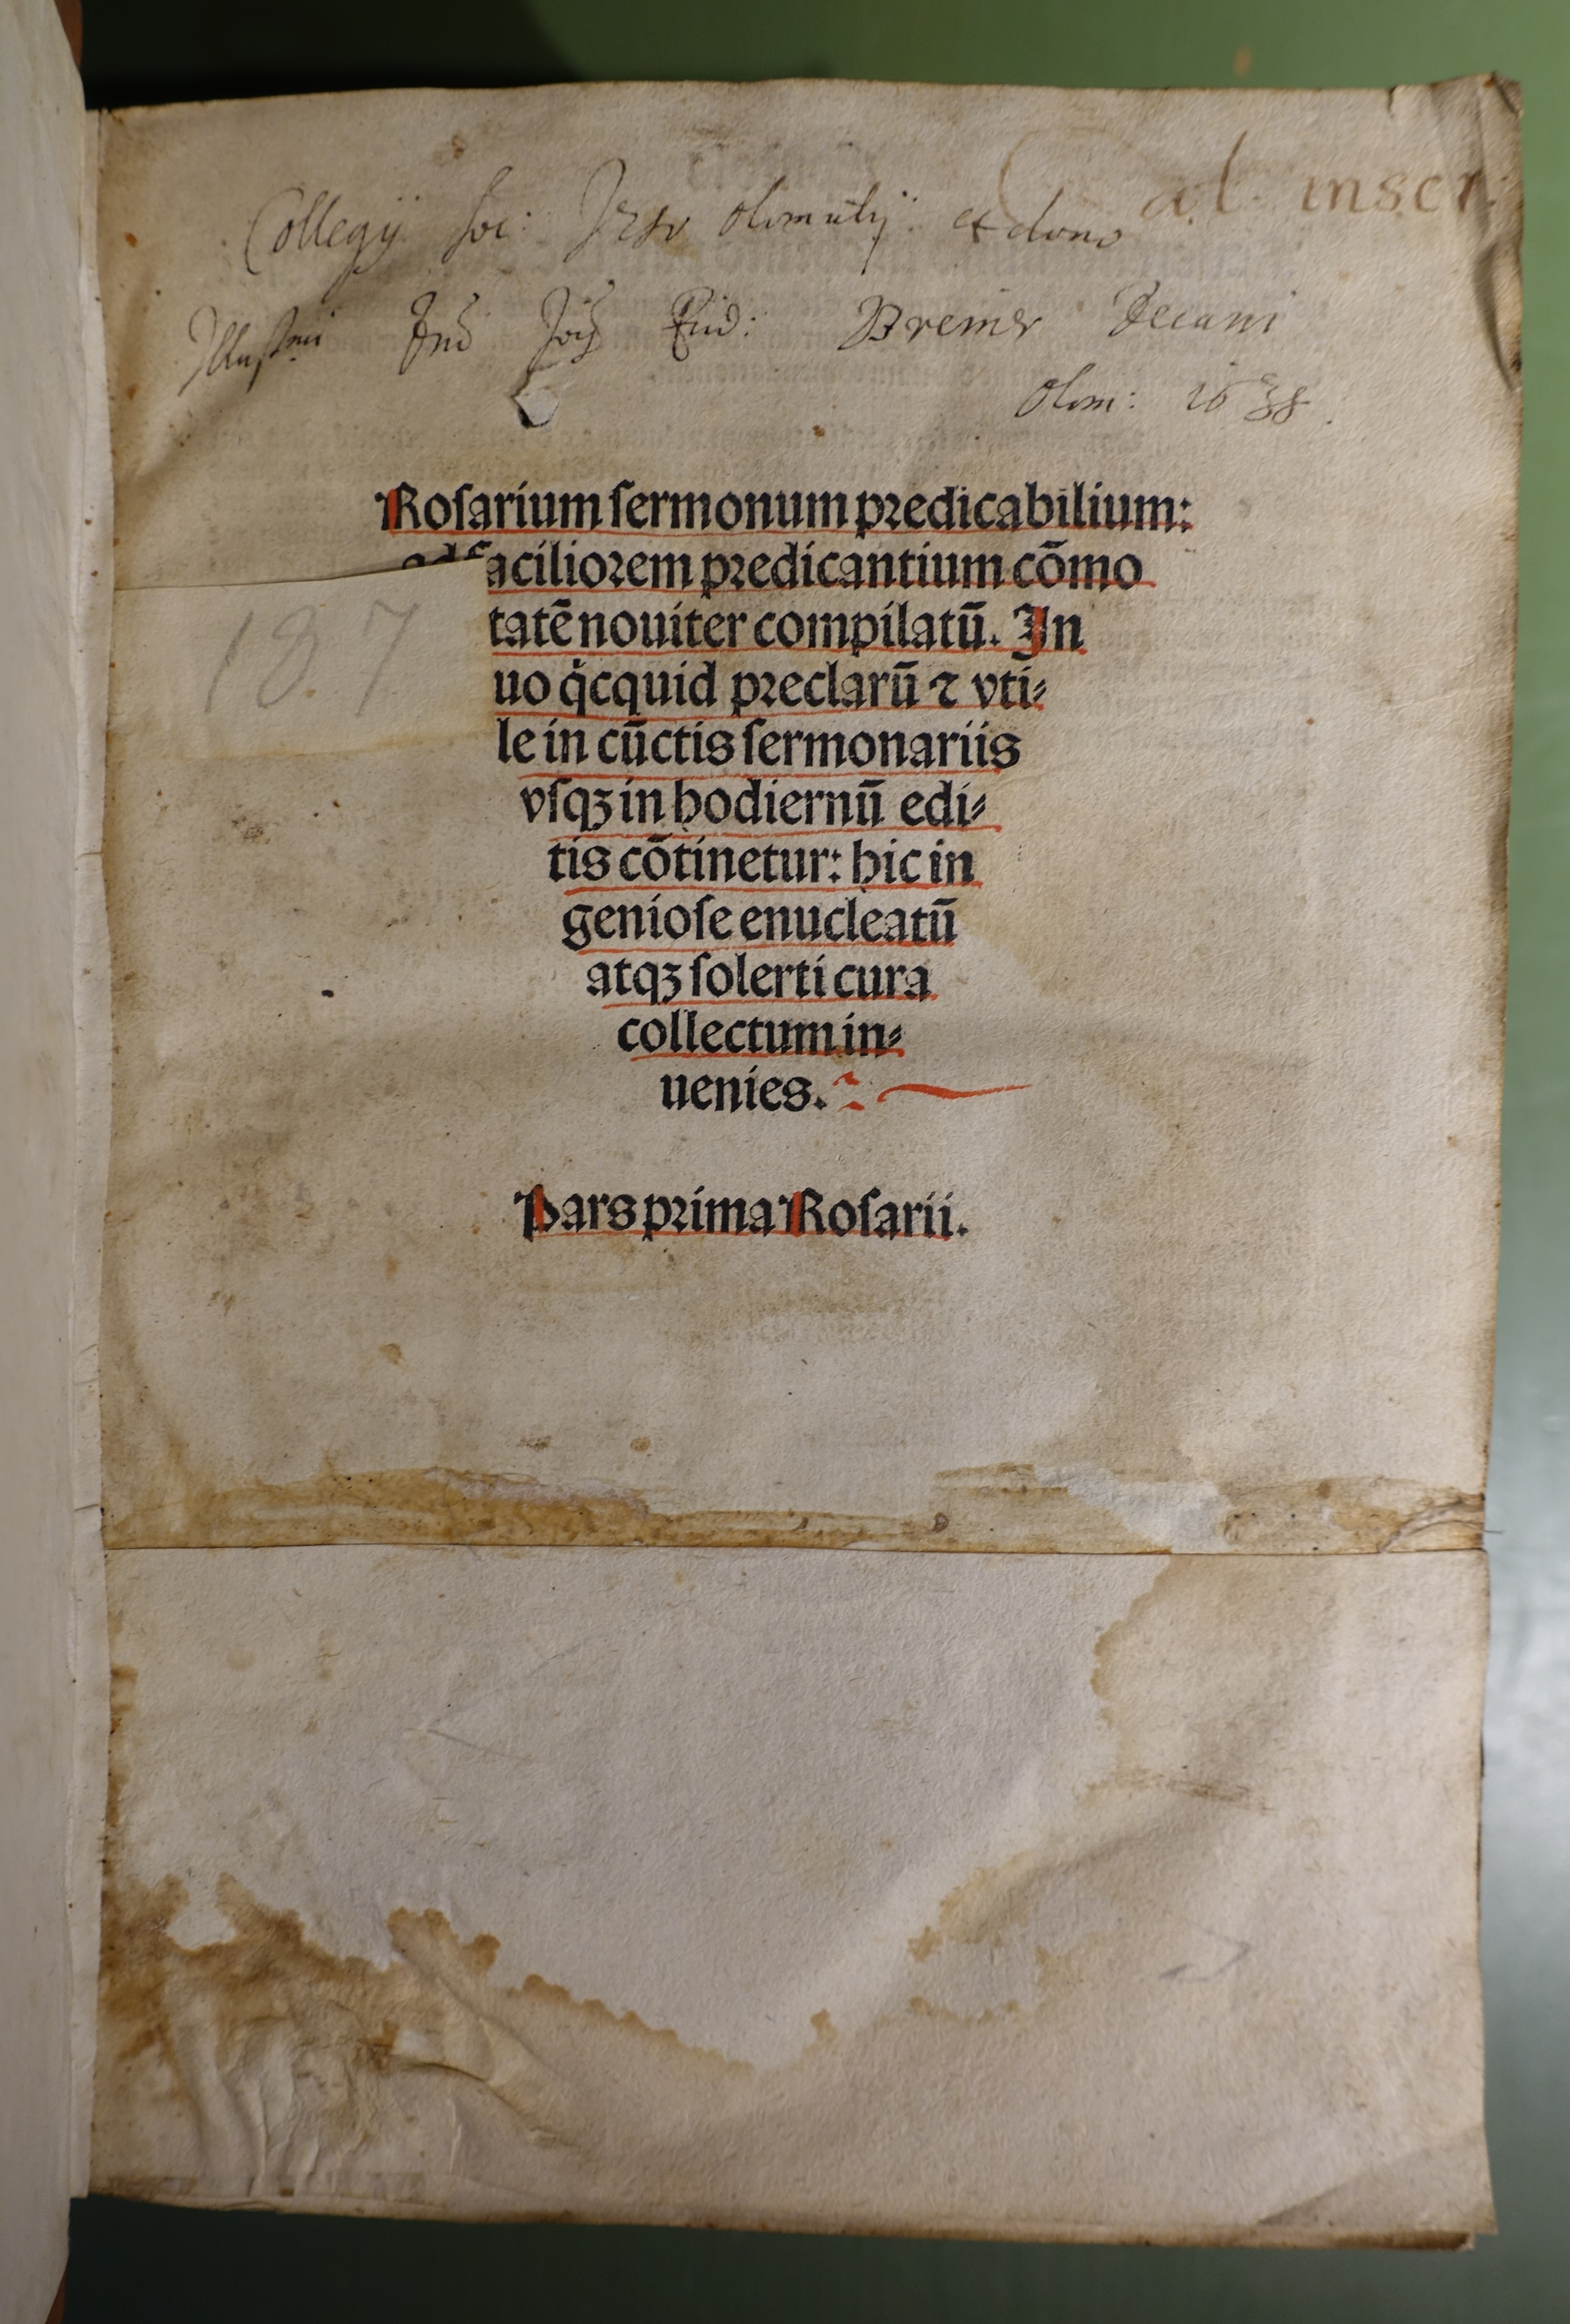 Collegij Soc: Jesu Olomutij ex dono al inscr:
Illustmi Dnd Jois Frid: Breiner Decani
Olom: 1638
Roſarium ſermonum predicabilium:
ad faciliorem predicantium cōmo
tatē nouiter compilatū. In
uo q̇cquid preclarū ⁊ vti⸗
le in cūctis ſermonariis
vſqꝫ in hodiernū edi⸗
tis cōtinetur: hic in
genioſe enucleatū
atqꝫ ſolerti cura
collectum in⸗
uenies.
Pars prima Roſarii.
187